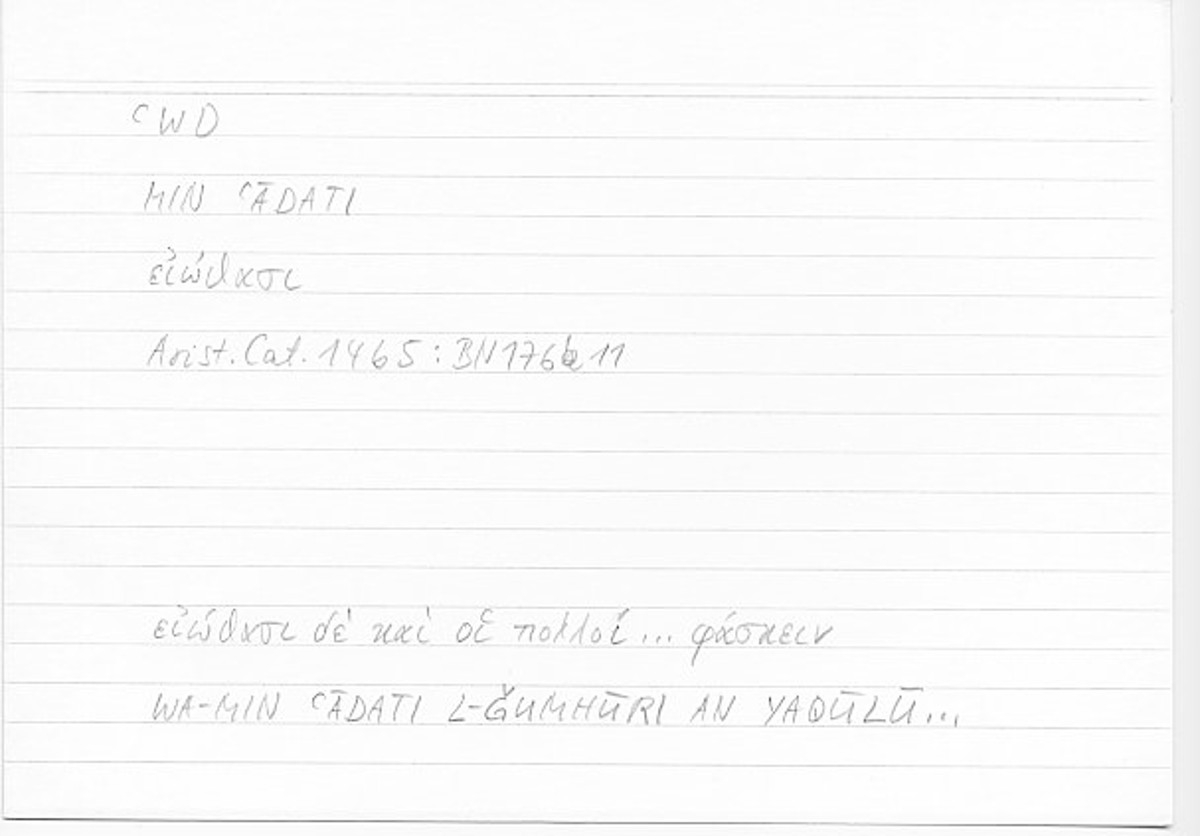 ʿWD
MIN ʿĀDATI
εἰώθασι
Arist. Cat. 1465 : BN 176b 11
εἰώθασι δὲ καὶ οἱ πολλοί ... φάσκειν
WA-MIN ʿĀDATI L-ǦUMHŪRI AN YAQŪLŪ...